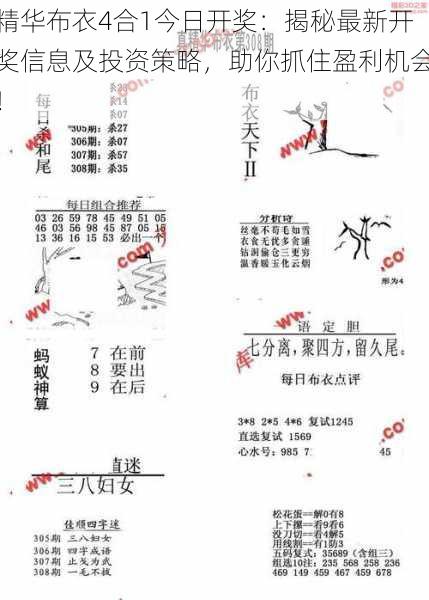 精华布衣4合1今日开奖：揭秘最新开
奖信息及投资策略，助你抓住盈利机会
!
真精华布衣第308期
每日杀和尾
305期：杀27
306期：杀07
307期：杀57
308期：杀35
布衣天下II
每日组合推荐
03 26 59 78 45 49 51 05
46 03 56 98 45 87 05 15
13 36 16 15 53 必出一个
分析诗
丝毫不苟毛如雪
衣食无忧多贪睡
钻洞偷仓三更穷
温香暖玉化云烟
形为4
蚂蚁神算
7 在前
8 要出
9 在后
一语定胆
七分离，聚四方，留久尾。
每日布衣点评
3*8 2*5 4*6 复试1245
直选复试 1569
心水号：985 7
45
直迷
三八妇女
佳顺四字迷
305期 三八妇女
306期 四字成语
307期 止戈为武
308期 一毛不拔
松花蛋==解0有8
上下摞==看9看6
没刀切==看4看2
用线割==有1防3
五码复式：35689（含组三）
组选10注：235 568 258 236
469 149 459 467 457 678